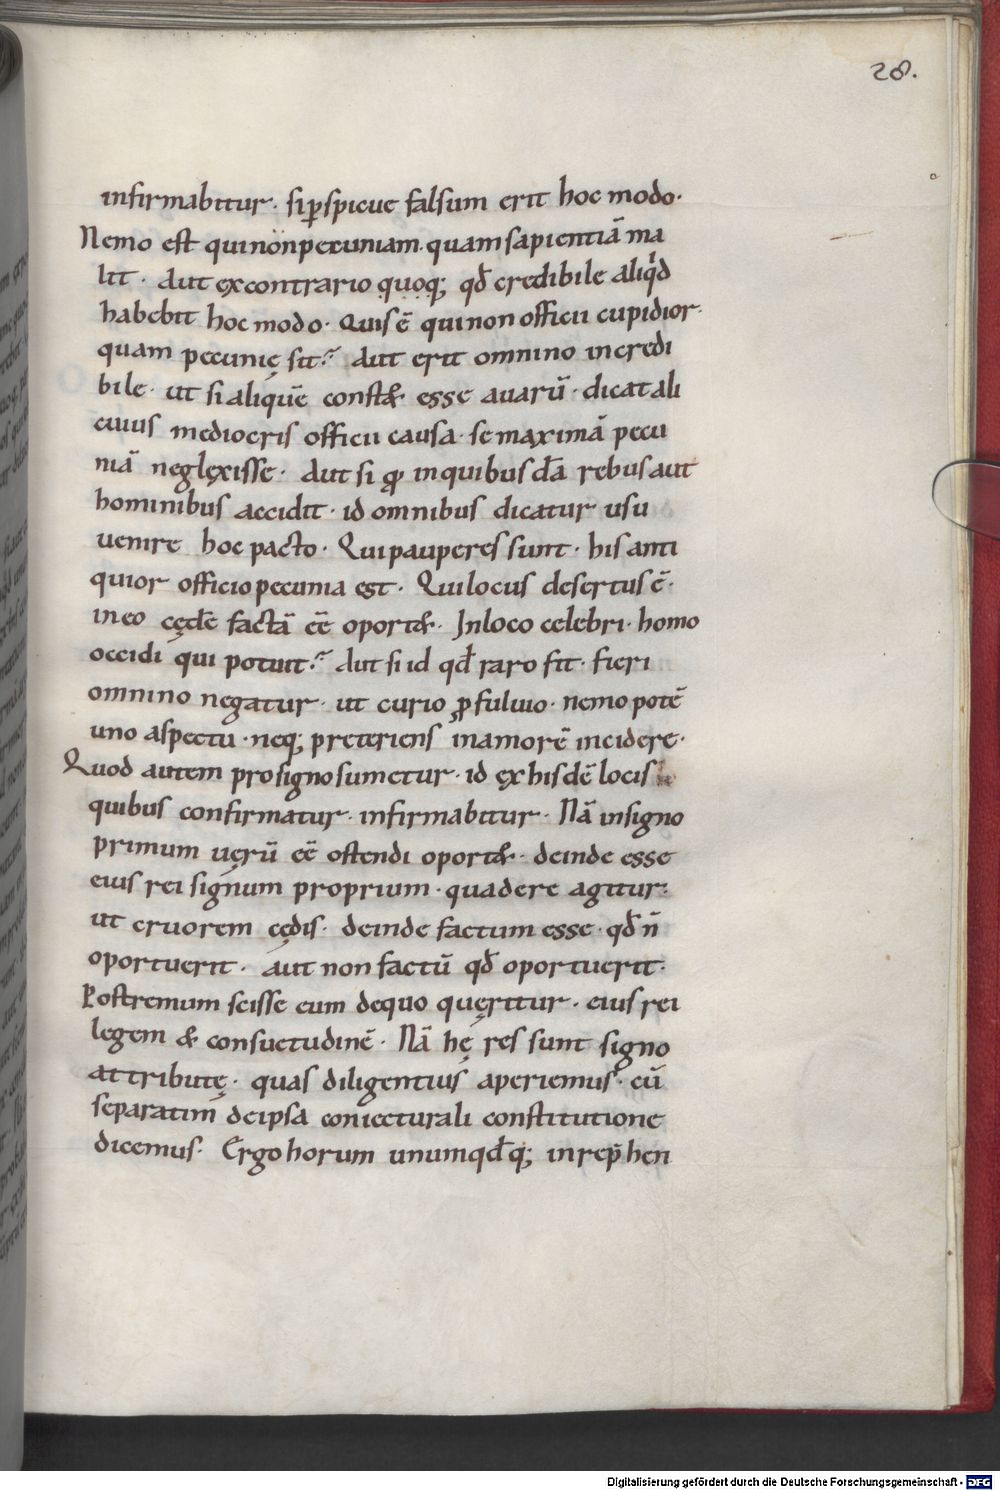 28.
infirmabitur· si ꝑspicue falsum erit hoc modo·
Nemo est qui non pecuniam quam sapientiā ma
lit· Aut ex contrario quoq; qđ credibile aliqđ
habebit hoc modo· Quis ē qui non officii cupidior·
quam pecunię sit? Aut erit omnino incredi
bile· ut si aliquē constat & esse auarū· dicat ali
cuius mediocris officii causa· se maximā pecu
niā neglexisse· Aut si qđ in quibusdā rebus aut
hominibus accidit· id omnibus dicatur usu
uenire hoc pacto· Qui pauperes sunt· his anti
quior officio pecunia est· Qui locus desertus ē·
in eo cędē factā eē oport&· In loco celebri· homo
occidi qui potuit? Aut si id qđ raro fit· fieri
omnino negatur· ut curio ꝓ fuluio· nemo potē
uno aspectu· neq; preteriens in amorē incidere·
Quod autem pro signo sumetur· id ex hisdē locis
quibus confirmatur· infirmabitur· Nā in signo
primum uerū eē ostendi oport&· deinde esse
eius rei signum proprium· qua de re agitur·
ut cruorem cędis· deinde factum esse· qđ ñ
oportuerit· aut non factū qđ oportuerit·
Postremum scisse eum de quo quęritur· eius rei
legem & consuetudinē· Nā hę res sunt signo
attributę· quas diligentius aperiemus· cū
separatim de ipsa coniecturali constitutione
dicemus· Ergo horum unumqđq; in rep̄hen
Digitalisierung gefördert durch die Deutsche Forschungsgemeinschaft - DFG